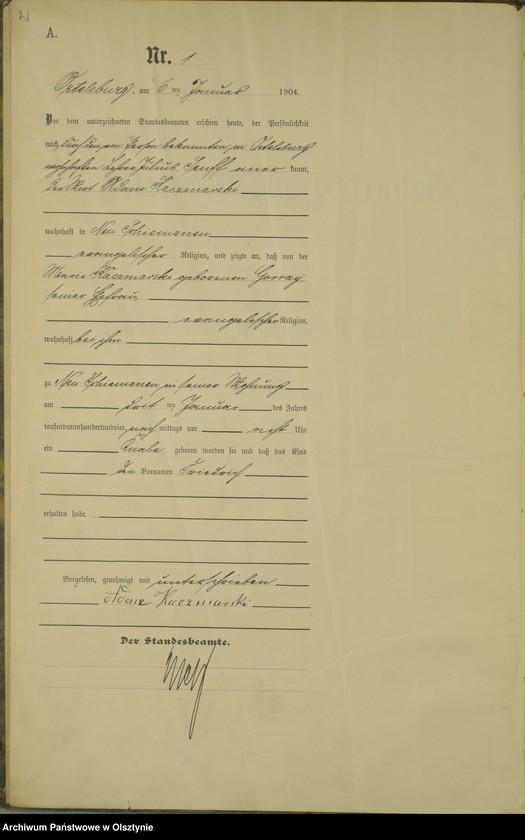 A.
Nr. 1
Ortelsburg, am 6 ten Januar 1904.
Vor dem unterzeichneten Standesbeamten erschien heute, der Persönlichkeit
nach durch den von Person bekannten, in Ortelsburg
wohnhaften Lehrer Julius aner kannt,
der Wirt Adam Kaczmarski
wohnhaft in Neu Schiemanen
evangelischer Religion, und zeigte an, daß von der
Marie Kaczmarski geborenen Gorray
seiner Ehefrau
evangelischer Religion,
wohnhaft bei ihm
zu Neu Schiemanen in seiner Wohnung
am ten Januar des Jahres
tausendneunhundertundvier nach mittags um acht Uhr
ein Knabe geboren worden sei und daß das Kind
den Vornamen Friedrich
erhalten habe.
Vorgelesen, genehmigt und unterschrieben
Adam Kaczmarski
Der Standesbeamte.
Archiwum Państwowe w Olsztynie